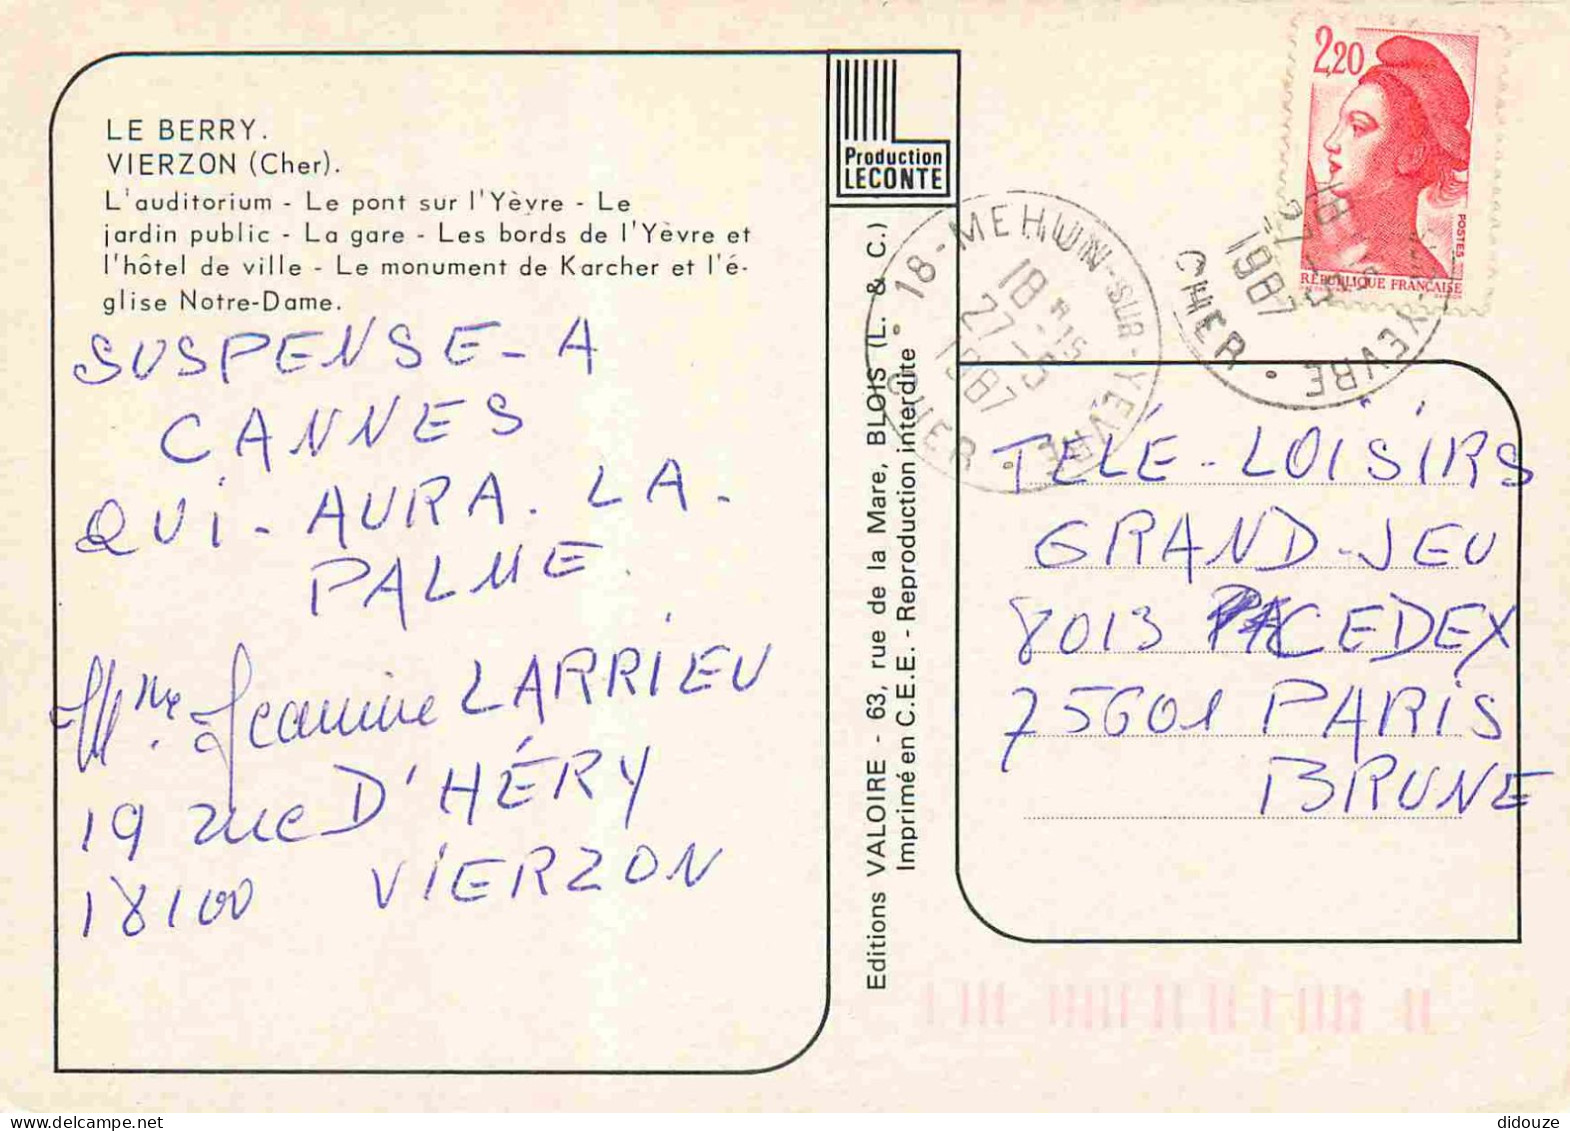 LE BERRY.
VIERZON (Cher).
L'auditorium - Le pont sur l'Yèvre - Le
jardin public - La gare - Les bords de l'Yèvre et
l'hôtel de ville - Le monument de Karcher et l'é-
glise Notre-Dame.
SUSPENSE - A
CANNES
QUI - AURA. LA -
PALME.
Mme. Jeannine LARRIEU
19 rue D'HÉRY
18100 VIERZON
Production
LECONTE
Editions VALOIRE - 63, rue de la Mare, BLOIS (L. & C.)
Imprimé en C.E.E. - Reproduction interdite
18 - MEHUN-SUR-YEVRE
18 H 15
27-5
1987
CHER
2,20
POSTES
RÉPUBLIQUE FRANÇAISE
YEVRE
CHER
18
27-5
1987
TÉLÉ - LOISIRS
GRAND - JEU
8013 CEDEX
75601 PARIS
BRUNE
delcampe.net
didouze